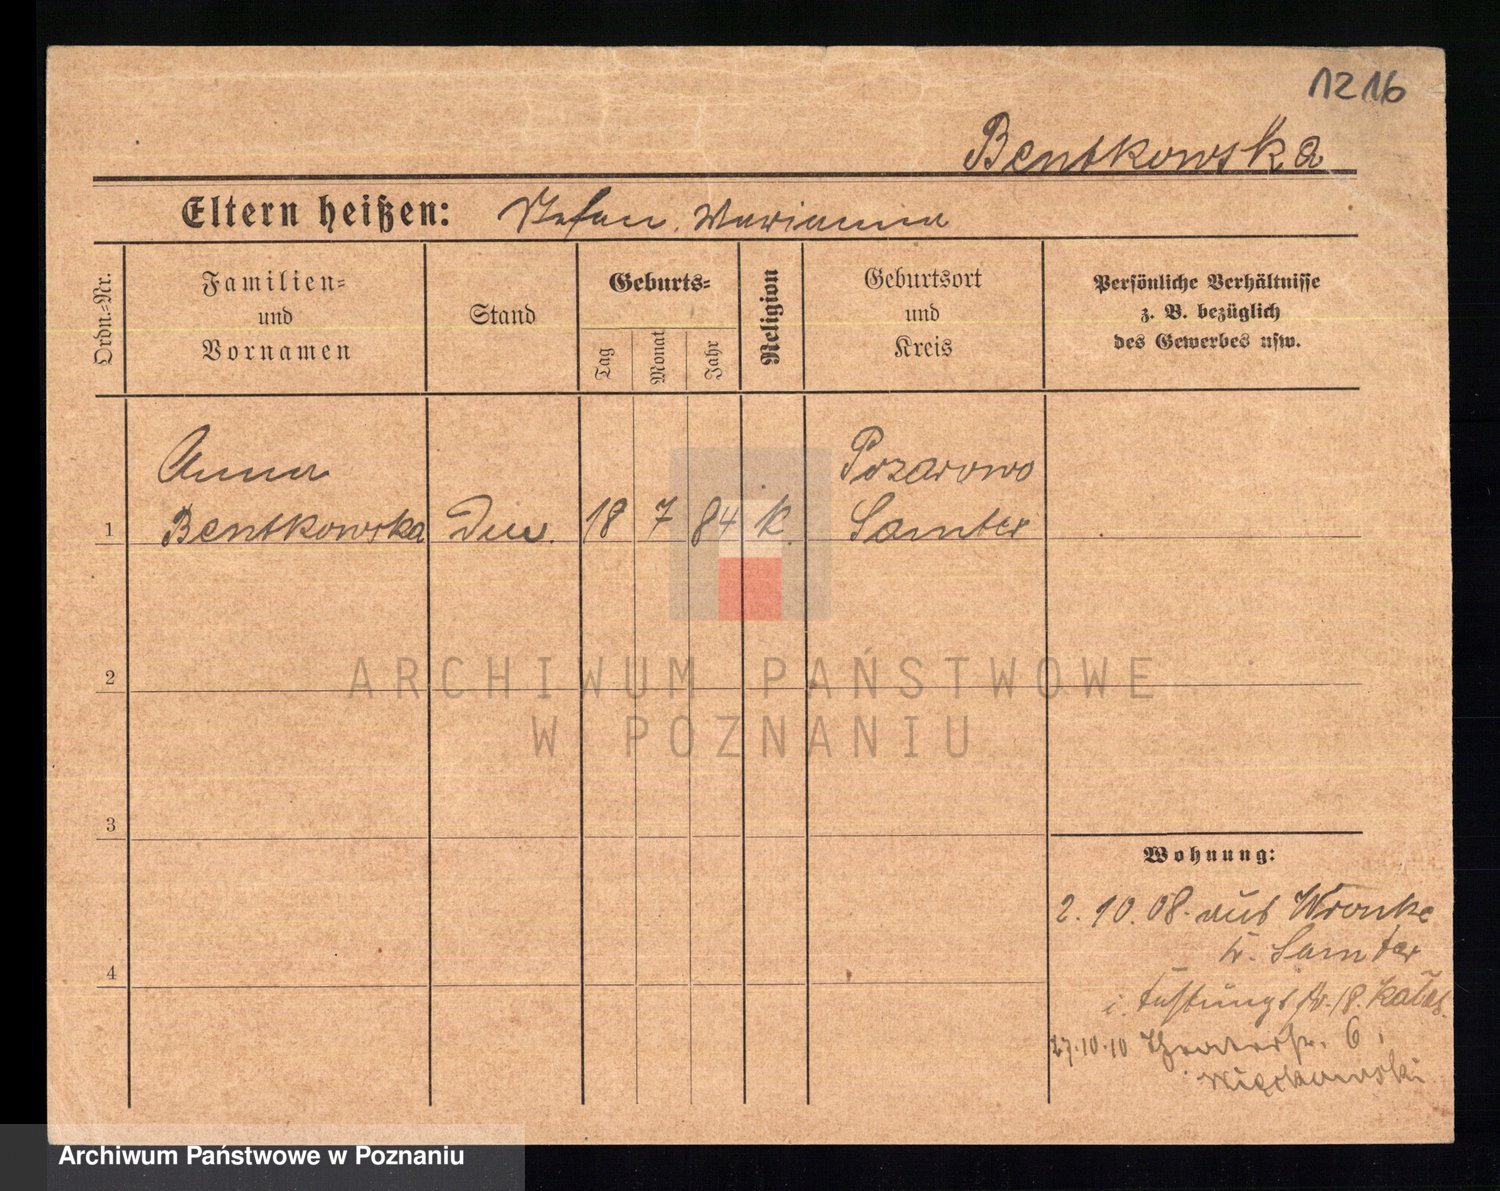 1216
Bentkowska
Eltern heißen: Stefan, Marianna
Ordn.-Nr.
Familien-
und
Vornamen
Stand
Geburts-
Tag
Monat
Jahr
Religion
Geburtsort
und
Kreis
Persönliche Verhältnisse
z. B. bezüglich
des Gewerbes usw.
Anna
Pozarowo
1 Bentkowska 18 7 84 k. Samter
2
ARCHIWUM PAŃSTWOWE
W POZNANIU
3
Wohnung:
2. 10. 08. aus Wronke
Kr. Samter
i. 18.
4
27.10.10 Theaterstr. 6,
Więckowski
Archiwum Państwowe w Poznaniu